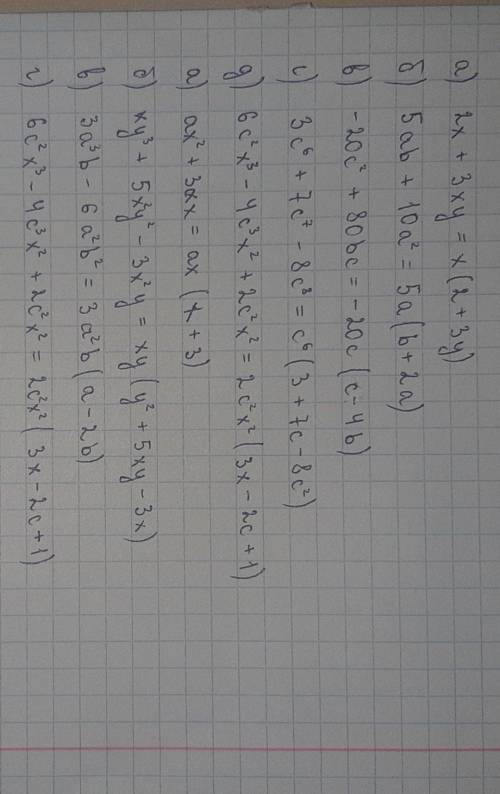 а) 2x + 3xy = x(2+3y)
б) 5ab + 10a² = 5a(b+2a)
в) -20c² + 80bc = -20c(c-4b)
г) 3c⁶ + 7c⁷ - 8c⁸ = c⁶(3+7c-8c²)
д) 6c²x³ - 4c³x² + 2c²x² = 2c²x²(3x-2c+1)
а) ax² + 3ax = ax(x+3)
б) xy³ + 5x²y² - 3x²y = xy(y²+5xy-3x)
в) 3a³b - 6a²b² = 3a²b(a-2b)
г) 6c²x³ - 4c³x² + 2c²x² = 2c²x²(3x-2c+1)